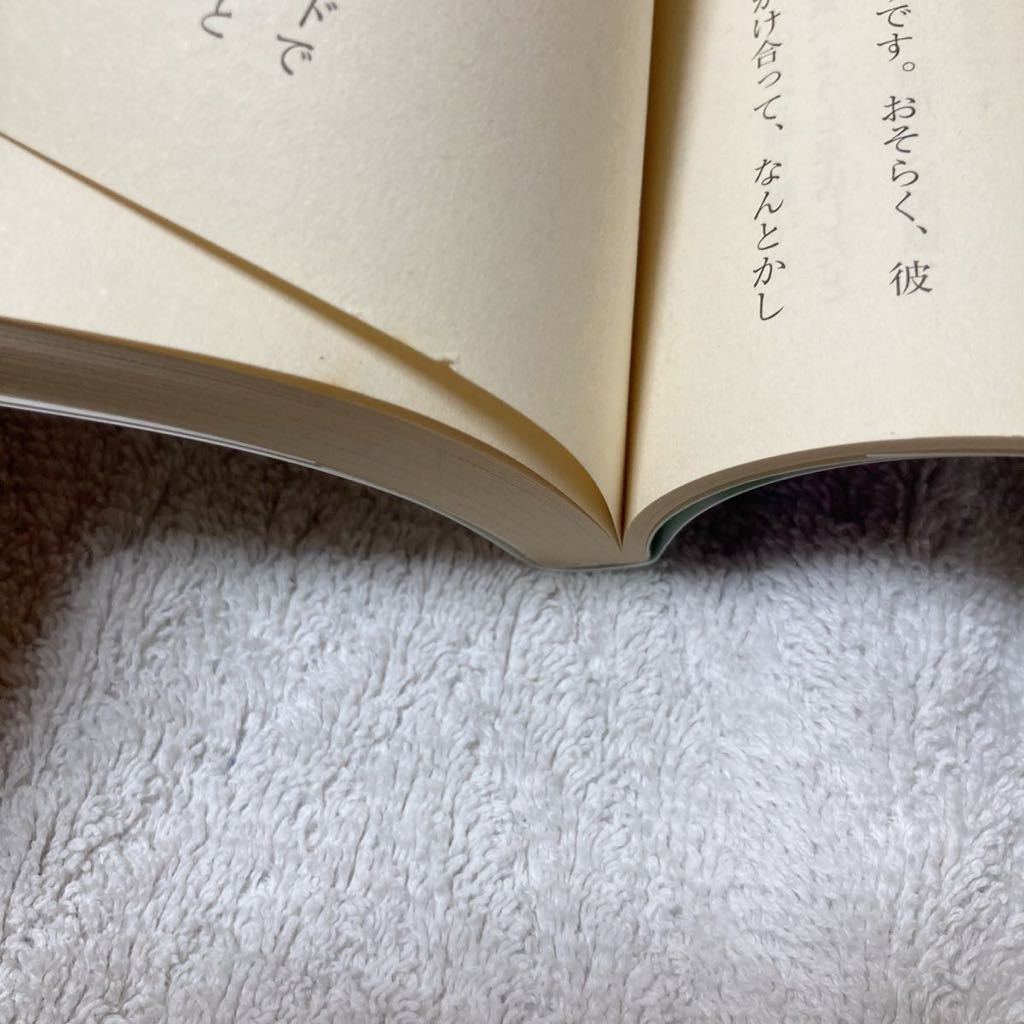 です。おそらく、彼
かけ合って、なんとかし
ドで
と